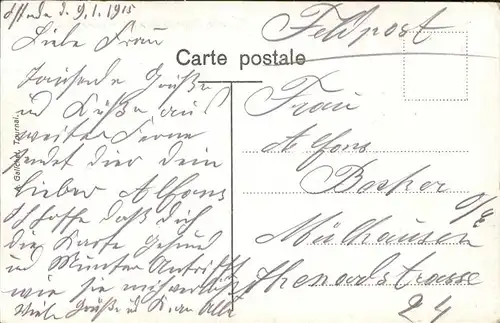 Ostende d. 9.1.1915
Liebe Frau
Tausende Grüße
und Küße aus
weiter Ferne
sendet dier dein
lieber Alfons
Ich hoffe daß dich
die Karte Gesund
und Munter Antrifft
wie sie mich verläßt
viele Grüße u K. an Alle
Carte postale
Feldpost
Frau
Alfons
Becker
Mülhausen
o/E
Thenardstrasse
24
Gallet, Tournai.